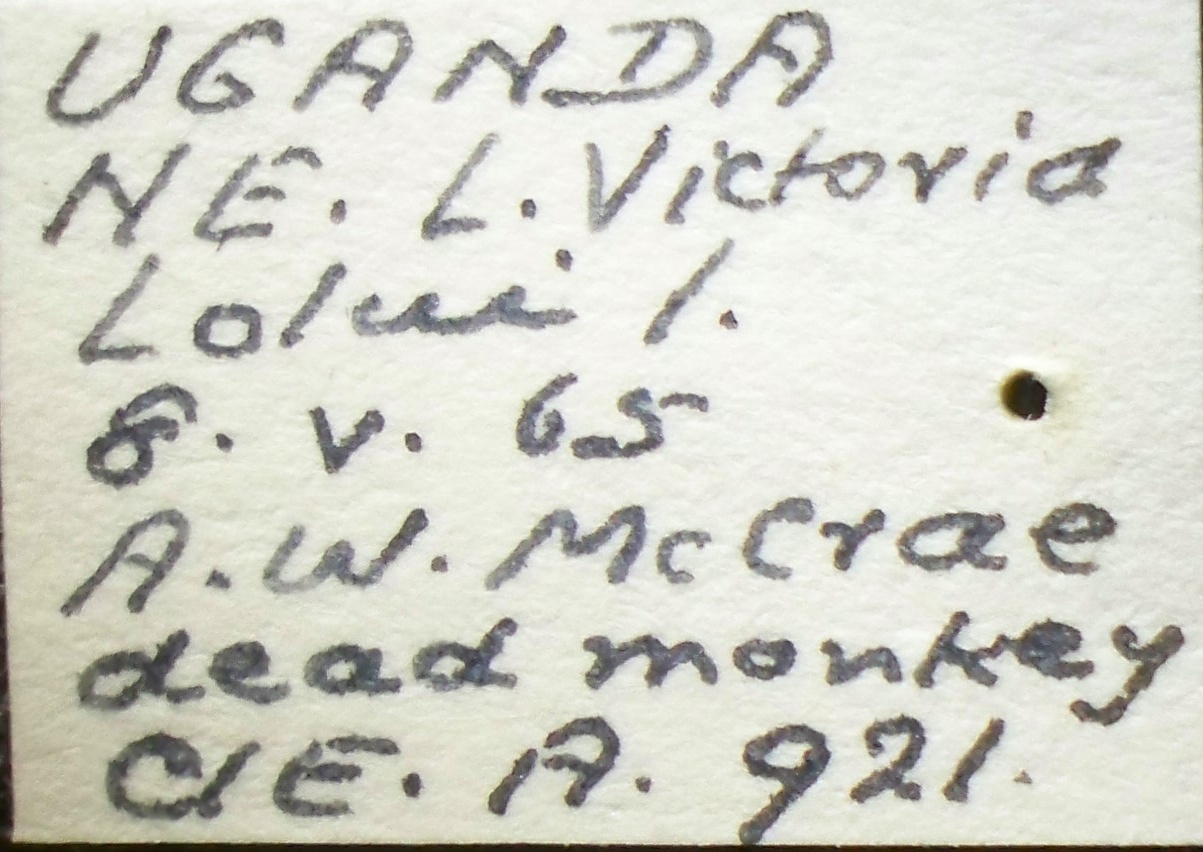 UGANDA
NE. L. Victoria
Lolui I.
8. v. 65
A.W. McCrae
dead monkey
CIE. A. 921.